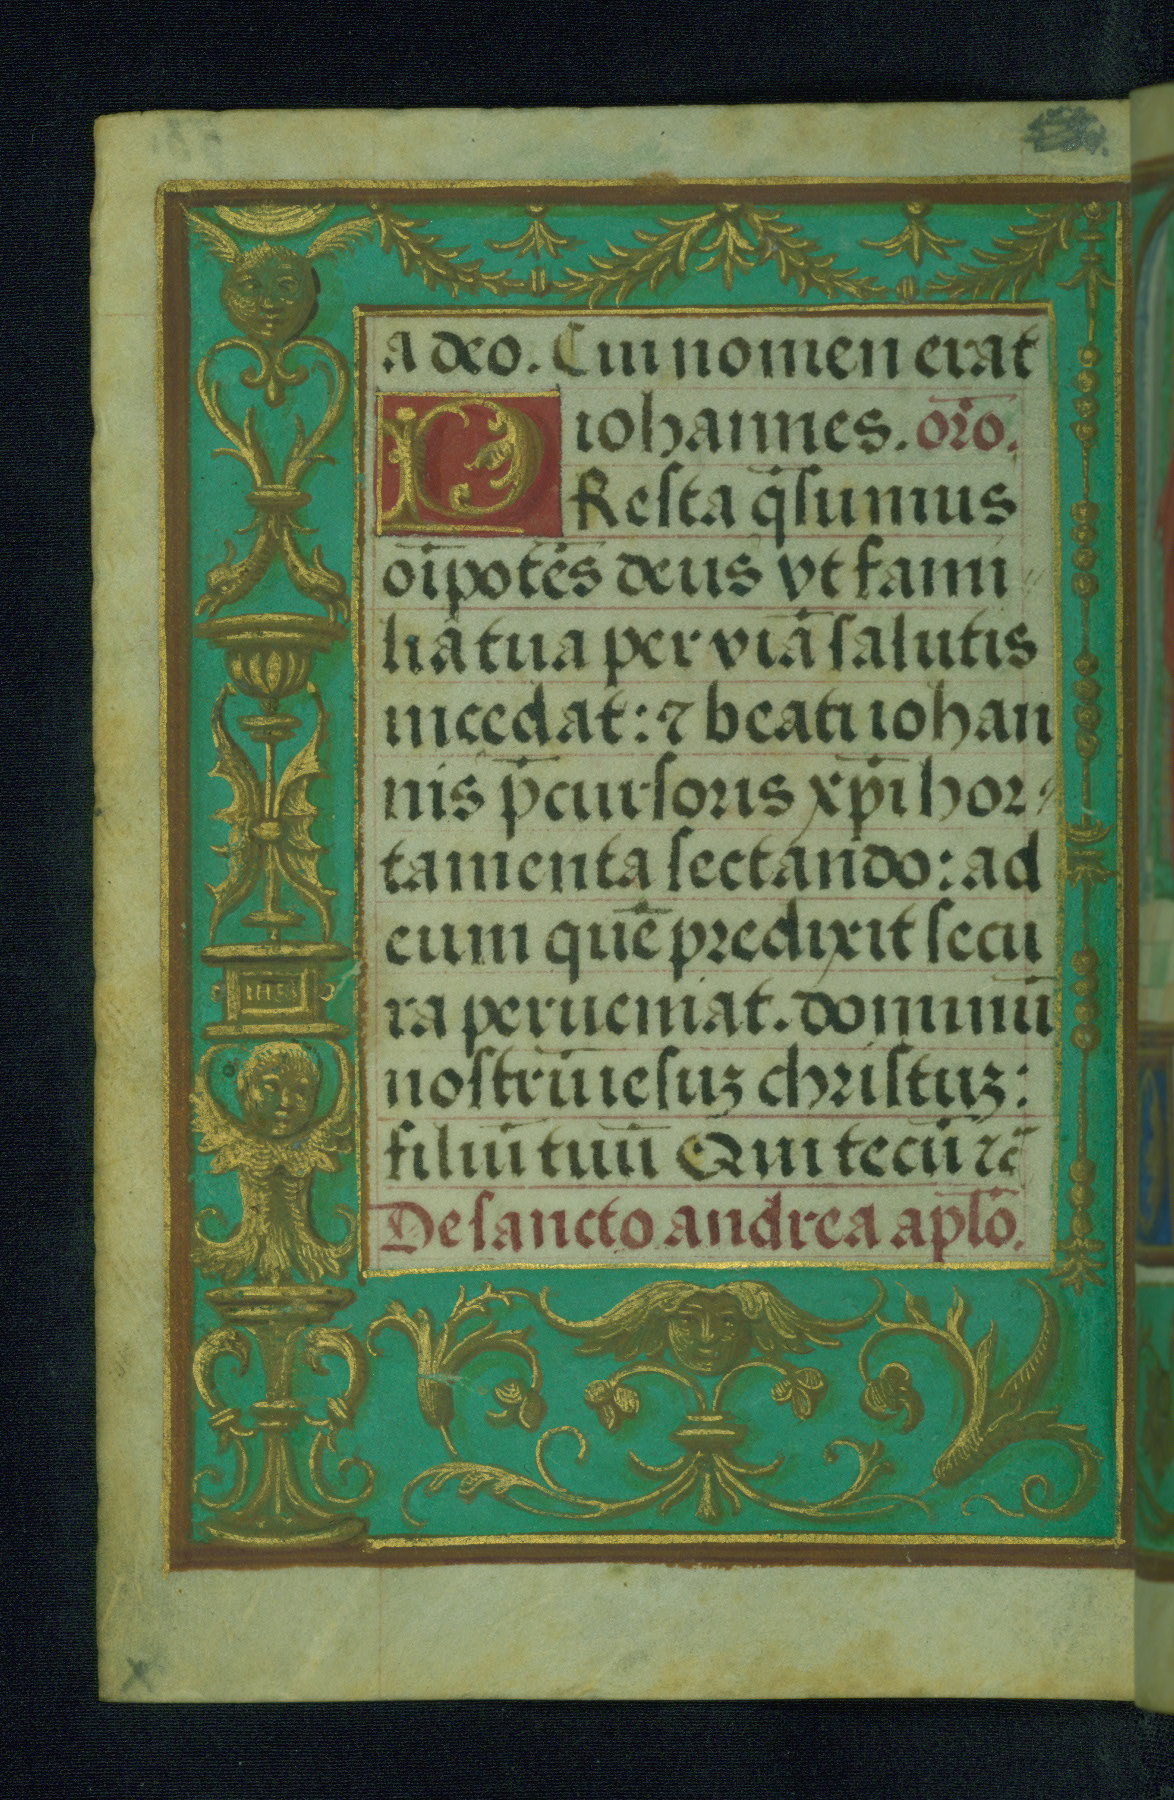 a deo. Cui nomen erat
iohannes. or̄o.
PResta q̄sumus
oīpotēs deus vt fami
liā tua per viā salutis
incedat: ⁊ beati iohan
nis p̄cursoris xp̄i hor
tamenta sectando: ad
eum quē predixit secu
ra perueniat. dominū
nostrū iesuꝫ christuꝫ:
filiū tuū Qui tecū ⁊c̄
De sancto andrea aplō.